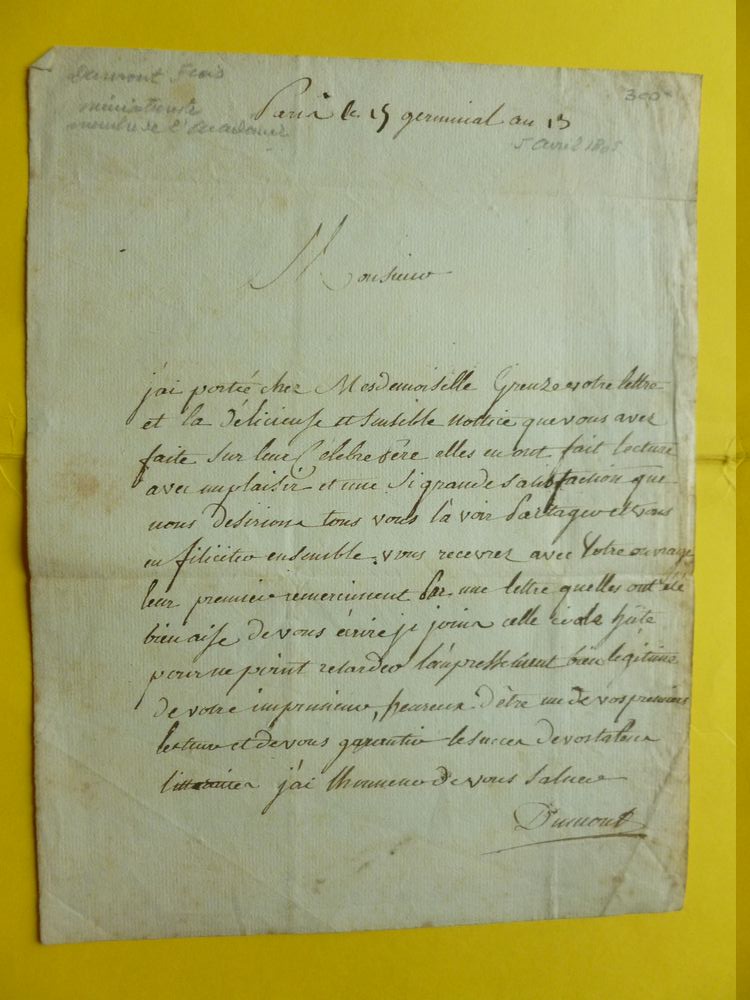 Dumont Fçois
miniaturiste
membre de l'Academie
300
Paris le 15 germinal an 13
5 avril 1805
Monsieur
j'ai portée chez Mesdemoiselle Greuze votre lettre
et la délicieuse et sensible nottice que vous avez
faite sur leur Célebre Père elles en ont fait lecture
avec un plaisir et une si grande satisfaction que
nous desirions tous vous la voir Partager et vous
en féliciter ensemble. vous recevrez avec Votre ouvrage
leur premier remerciment Par une lettre quelles ont été
bien aise de vous écrire je joins celle ci de hate
pour ne point retarder l'anpressement bien legitime
de votre imprimeur, heureux d'être un de vos premiers
lecteur et de vous garantir le succer de vos talens
litteraires j'ai lhonneur de vous saluer
Dumont